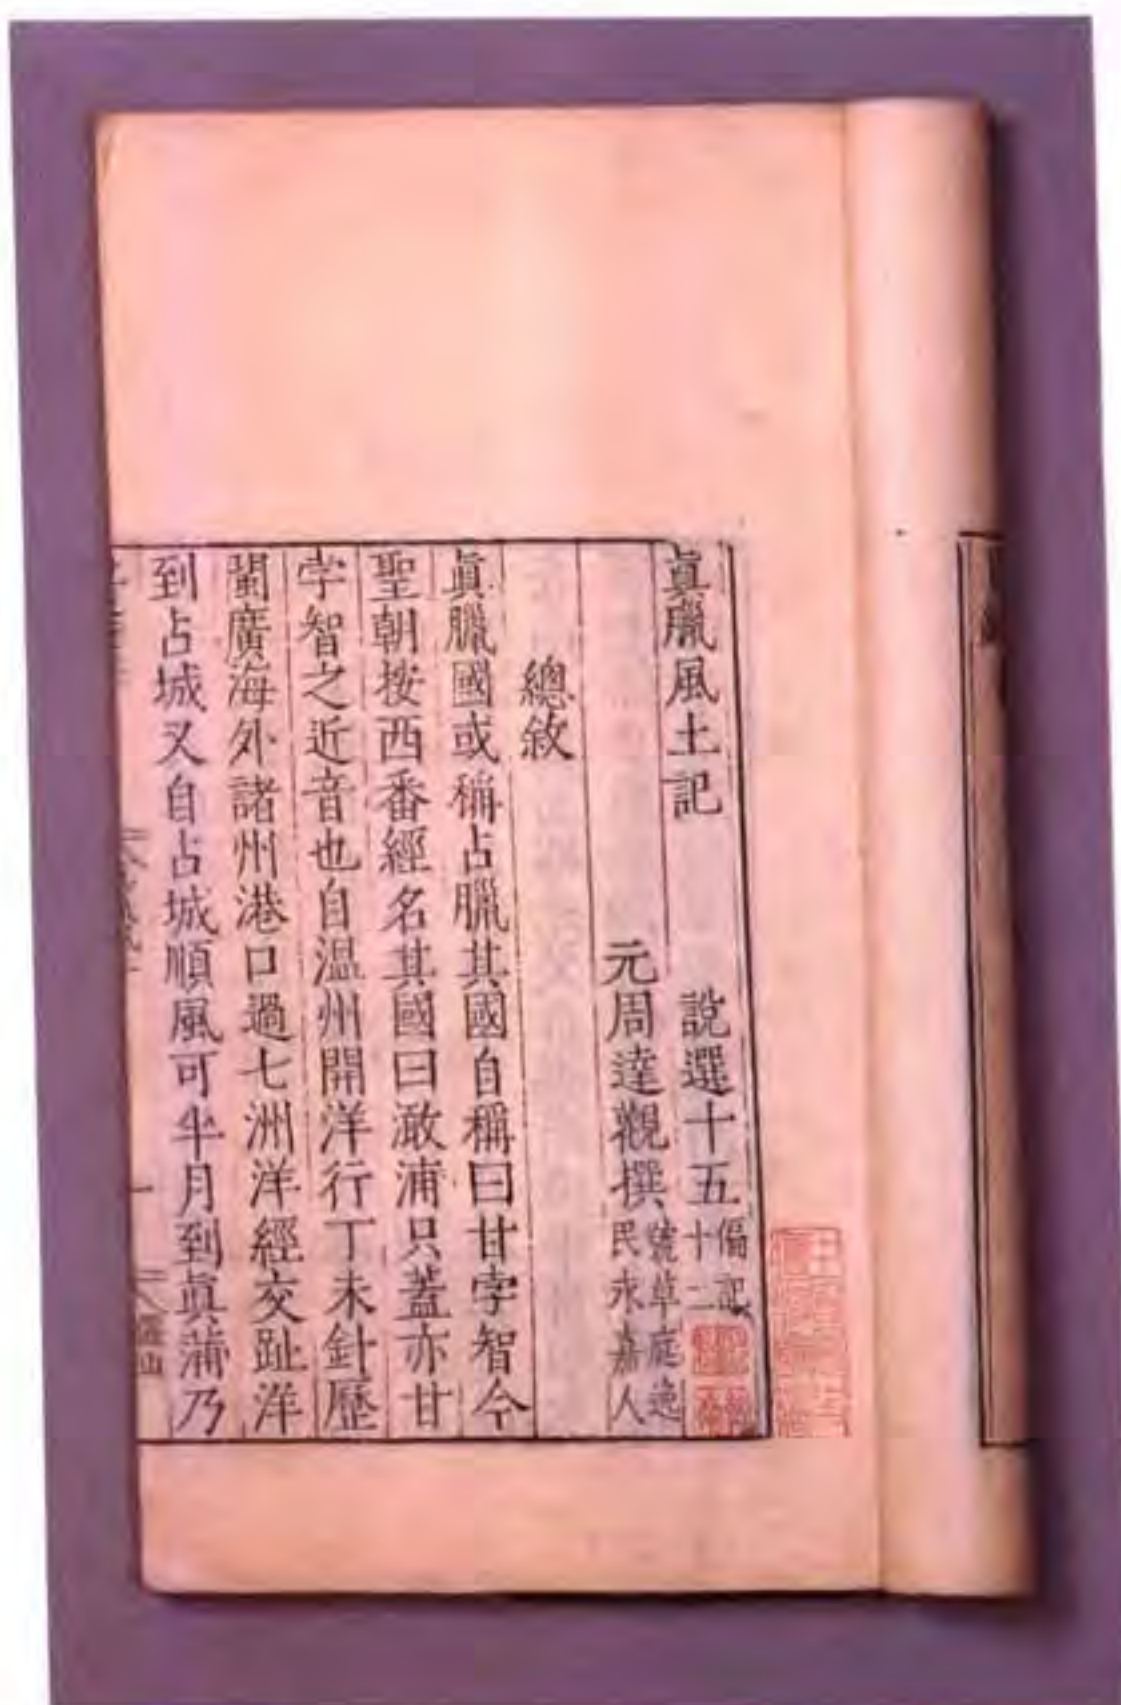 真臘風土記 說選十五 偏記十二
元周達觀撰 號草庭逸民永嘉人
總敘
真臘國或稱占臘其國自稱曰甘孛智今
聖朝按西番經名其國曰澉浦只蓋亦甘
孛智之近音也自温州開洋行丁未針歷
閩廣海外諸州港口過七洲洋經交趾洋
到占城又自占城順風可半月到真蒲乃